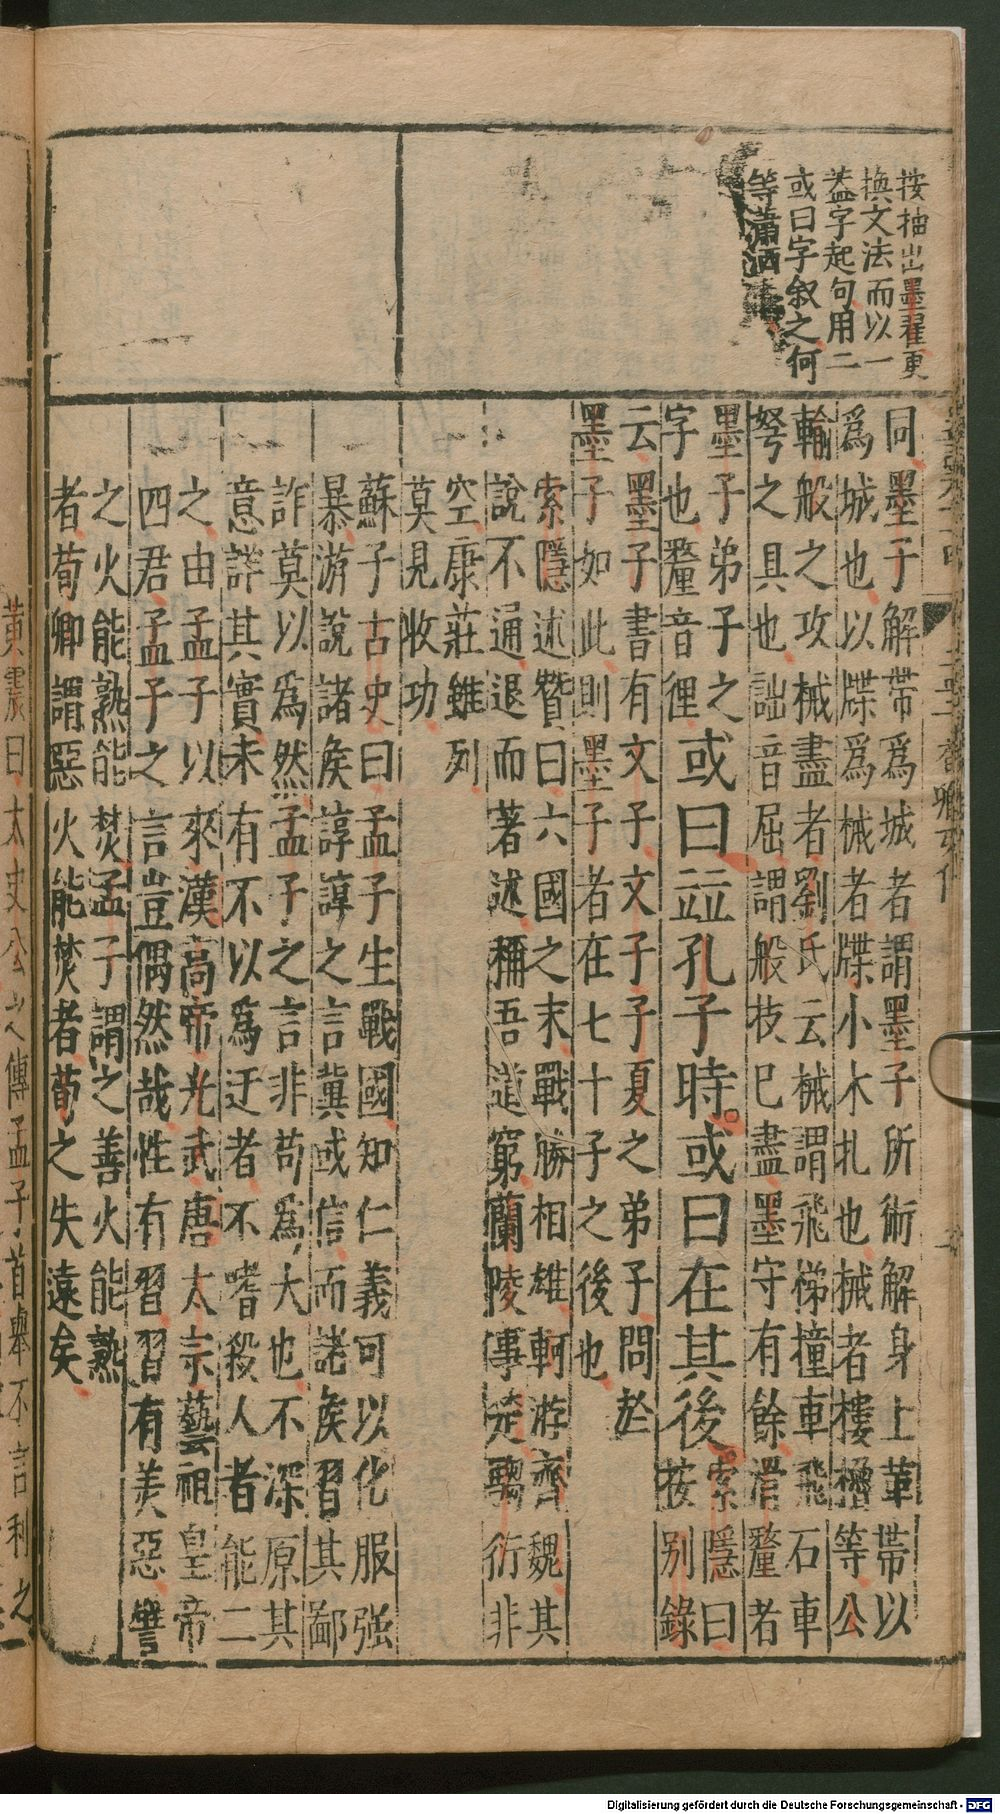 按抽出墨翟更
換文法而以一
蓋字起句用二
或曰字叙之何
等瀟洒
同墨子解帶爲城者謂墨子所術解身上革帶以
爲城也以牒爲械者牒小木札也械者樓櫓等公
輸般之攻械盡者劉氏云械謂飛梯撞車飛石車
弩之具也詘音屈謂般技已盡墨守有餘滑釐者
墨子弟子之
字也釐音俚
或曰並孔子時或曰在其後
索隱曰
按別錄
云墨子書有文子文子子夏之弟子問於
墨子如此則墨子者在七十子之後也
索隱述贊曰六國之末戰勝相雄軻游齊魏其
說不通退而著述稱吾道窮蘭陵事楚騶衍非
空康莊雖列
莫見收功
蘇子古史曰孟子生戰國知仁義可以化服强
暴游說諸矦諄諄之言冀或信而諸矦習其鄙
詐莫以爲然孟子之言非苟爲大也不深原其
意詳其實未有不以爲迂者不嗜殺人者能二
之由孟子以來漢高帝光武唐太宗藝祖皇帝
四君孟子之言豈偶然哉性有習習有美惡譬
之火能熟能焚孟子謂之善火能熟
者荀卿謂惡火能焚者荀之失遠矣
黄震曰太史公之傳孟子首舉不言利之
Digitalisierung gefördert durch die Deutsche Forschungsgemeinschaft - DFG